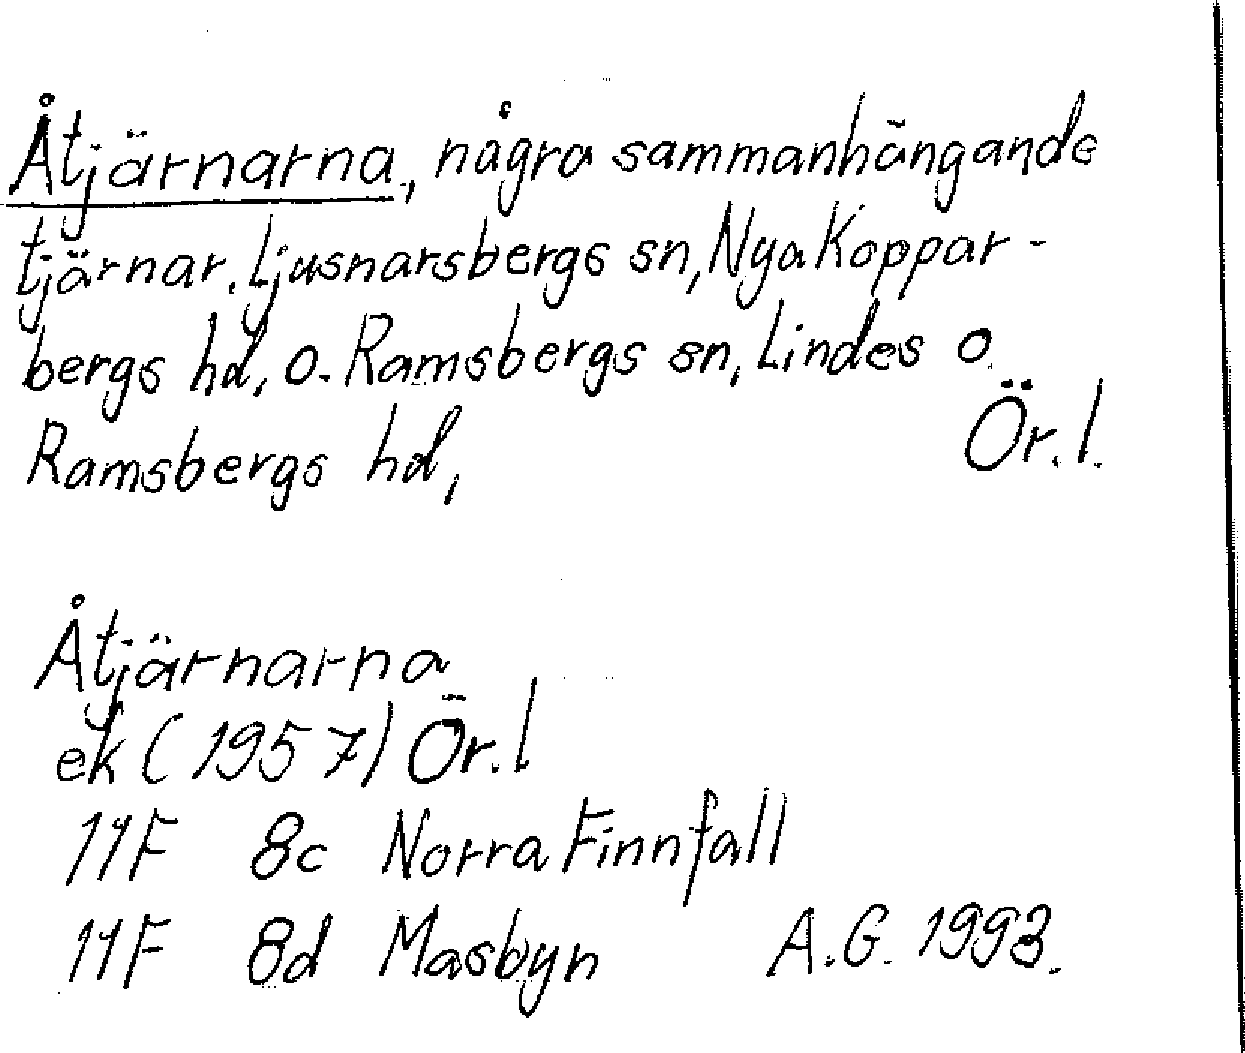 Åtjärnarna, några sammanhängande
tjärnar. Ljusnarsbergs sn, Nya Koppar-
bergs hd, o. Ramsbergs sn, Lindes o.
Ramsbergs hd, Ör. l.
Åtjärnarna
ek (1957) Ör. l
11F 8c Norra Finnfall
11F 8d Masbyn A.G. 1993.